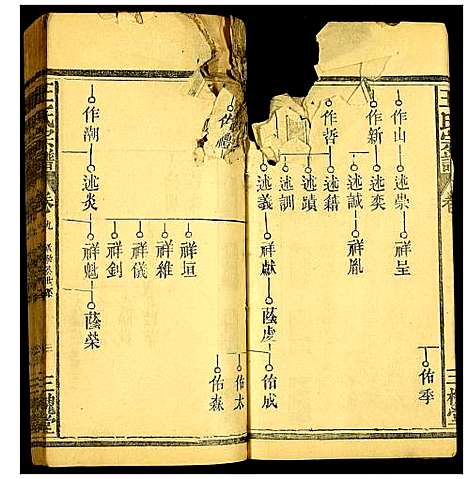 王氏宗譜
卷
三槐堂
作山
述槼
祥呈
佑季
作新
述奕
述誠
祥胤
作哲
述籍
述蹟
述訓
述義
祥獻
蔭虔
佑成
佑太
佑森
佑禮
祥垣
祥維
祥儀
祥釗
祥魁
作潮
述炎
蔭榮
王氏宗譜
卷九
三槐堂